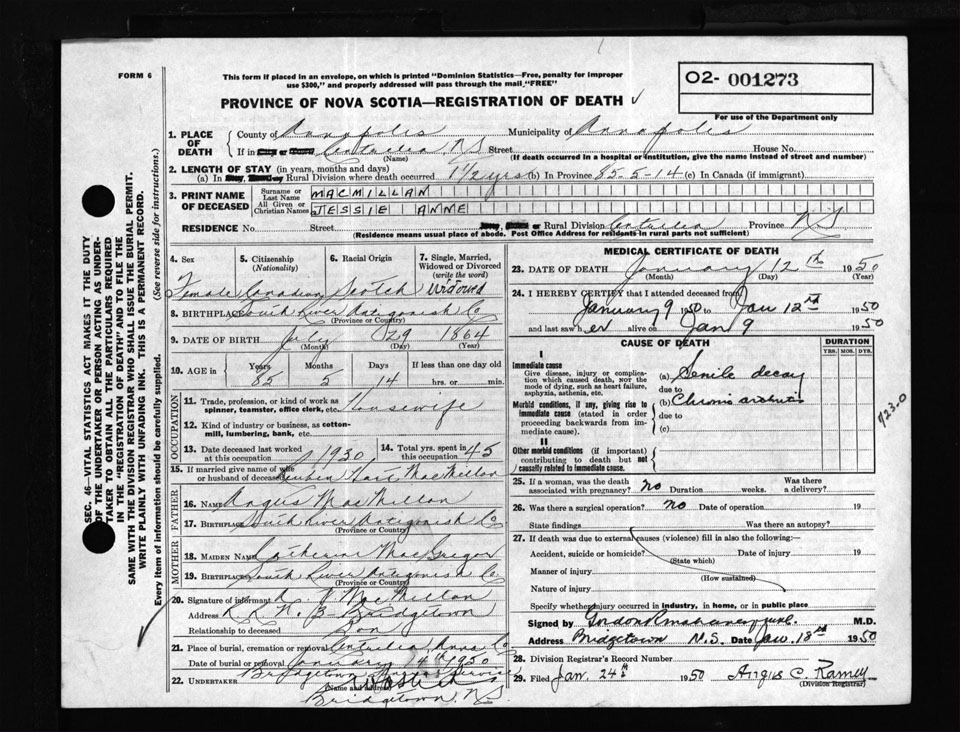 FORM 6
This form if placed in an envelope, on which is printed "Dominion Statistics—Free, penalty for improper
use $300," and properly addressed will pass through the mail "FREE"
02- 001273
For use of the Department only
PROVINCE OF NOVA SCOTIA—REGISTRATION OF DEATH
1. PLACE OF DEATH
County of Annapolis Municipality of Annapolis
If in Centrelea, N.S. Street House No.
(Name) (If death occurred in a hospital or institution, give the name instead of street and number)
2. LENGTH OF STAY (in years, months and days)
(a) In Rural Division where death occurred 1 1/2 yrs (b) In Province 85-5-14 (c) In Canada (if immigrant)
3. PRINT NAME OF DECEASED
Surname or Last Name MACMILLAN
All Given or Christian Names JESSIE ANNE
RESIDENCE No. Street or Rural Division Centrelea Province N.S.
(Residence means usual place of abode. Post Office Address for residents in rural parts not sufficient)
4. Sex Female
5. Citizenship (Nationality) Canadian
6. Racial Origin Scotch
7. Single, Married, Widowed or Divorced (write the word) Widowed
8. BIRTHPLACE South River Antigonish Co
(Province or Country)
9. DATE OF BIRTH July 29 1864
(Month) (Day) (Year)
10. AGE in Years 85 Months 5 Days 14 If less than one day old hrs. or min.
OCCUPATION
11. Trade, profession, or kind of work as spinner, teamster, office clerk, etc. Housewife
12. Kind of industry or business, as cotton-mill, lumbering, bank, etc.
13. Date deceased last worked at this occupation 1930 14. Total yrs. spent in this occupation 45
15. If married give name of wife or husband of deceased MacMillan
FATHER
16. NAME Angus MacMillan
17. BIRTHPLACE South River Antigonish Co
(Province or Country)
MOTHER
18. MAIDEN NAME Catherine MacGregor
19. BIRTHPLACE South River Antigonish Co
(Province or Country)
20. Signature of informant MacMillan
Address R.R. No. 3 Bridgetown
Relationship to deceased Son
21. Place of burial, cremation or removal Centrelea, Anna Co
Date of burial or removal January 14th 1950
22. UNDERTAKER Bridgetown Service
(Name and address)
Bridgetown, N.S.
MEDICAL CERTIFICATE OF DEATH
23. DATE OF DEATH January 12th 1950
(Month) (Day) (Year)
24. I HEREBY CERTIFY that I attended deceased from
January 9 1950 to Jan 12th 1950
and last saw her alive on Jan 9 1950
CAUSE OF DEATH
DURATION
YRS. MOS. DYS.
I
Immediate cause
Give disease, injury or complication which caused death, not the mode of dying, such as heart failure, asphyxia, asthenia, etc.
(a) Senile decay
due to
Morbid conditions, if any, giving rise to immediate cause (stated in order proceeding backwards from immediate cause).
(b) Chronic arthritis
due to
(c)
723.0
II
Other morbid conditions (if important) contributing to death but not causally related to immediate cause.
25. If a woman, was the death associated with pregnancy? No Duration weeks. Was there a delivery?
26. Was there a surgical operation? No Date of operation 19
State findings Was there an autopsy?
27. If death was due to external causes (violence) fill in also the following:—
Accident, suicide or homicide? Date of injury 19
(State which)
Manner of injury
(How sustained)
Nature of injury
Specify whether injury occurred in industry, in home, or in public place
Signed by M.D.
Address Bridgetown N.S. Date Jan. 18th 1950
28. Division Registrar's Record Number
29. Filed Jan. 24th 1950 Angus C. Ramey
(Division Registrar)
SEC. 46—VITAL STATISTICS ACT MAKES IT THE DUTY
OF THE UNDERTAKER OR PERSON ACTING AS UNDER-
TAKER TO OBTAIN ALL THE PARTICULARS REQUIRED
IN THE "REGISTRATION OF DEATH" AND TO FILE THE
SAME WITH THE DIVISION REGISTRAR WHO SHALL ISSUE THE BURIAL PERMIT.
WRITE PLAINLY WITH UNFADING INK. THIS IS A PERMANENT RECORD.
Every item of information should be carefully supplied. (See reverse side for instructions.)